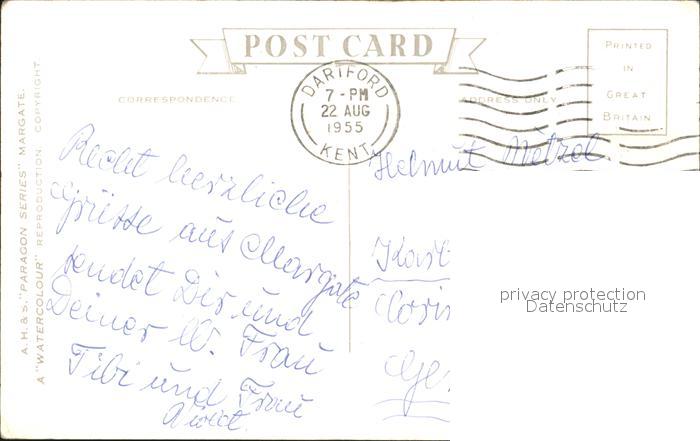 POST CARD
CORRESPONDENCE
ADDRESS ONLY
PRINTED
IN
GREAT
BRITAIN
DARTFORD
7-PM
22 AUG
1955
KENT
A.H.& S. "PARAGON SERIES" MARGATE.
A "WATERCOLOUR" REPRODUCTION. COPYRIGHT.
Recht herzliche
Grüsse aus Margate
sendet Dir und
Deiner W. Frau
Tibi und Frau
Helmut Metzel
privacy protection
Datenschutz